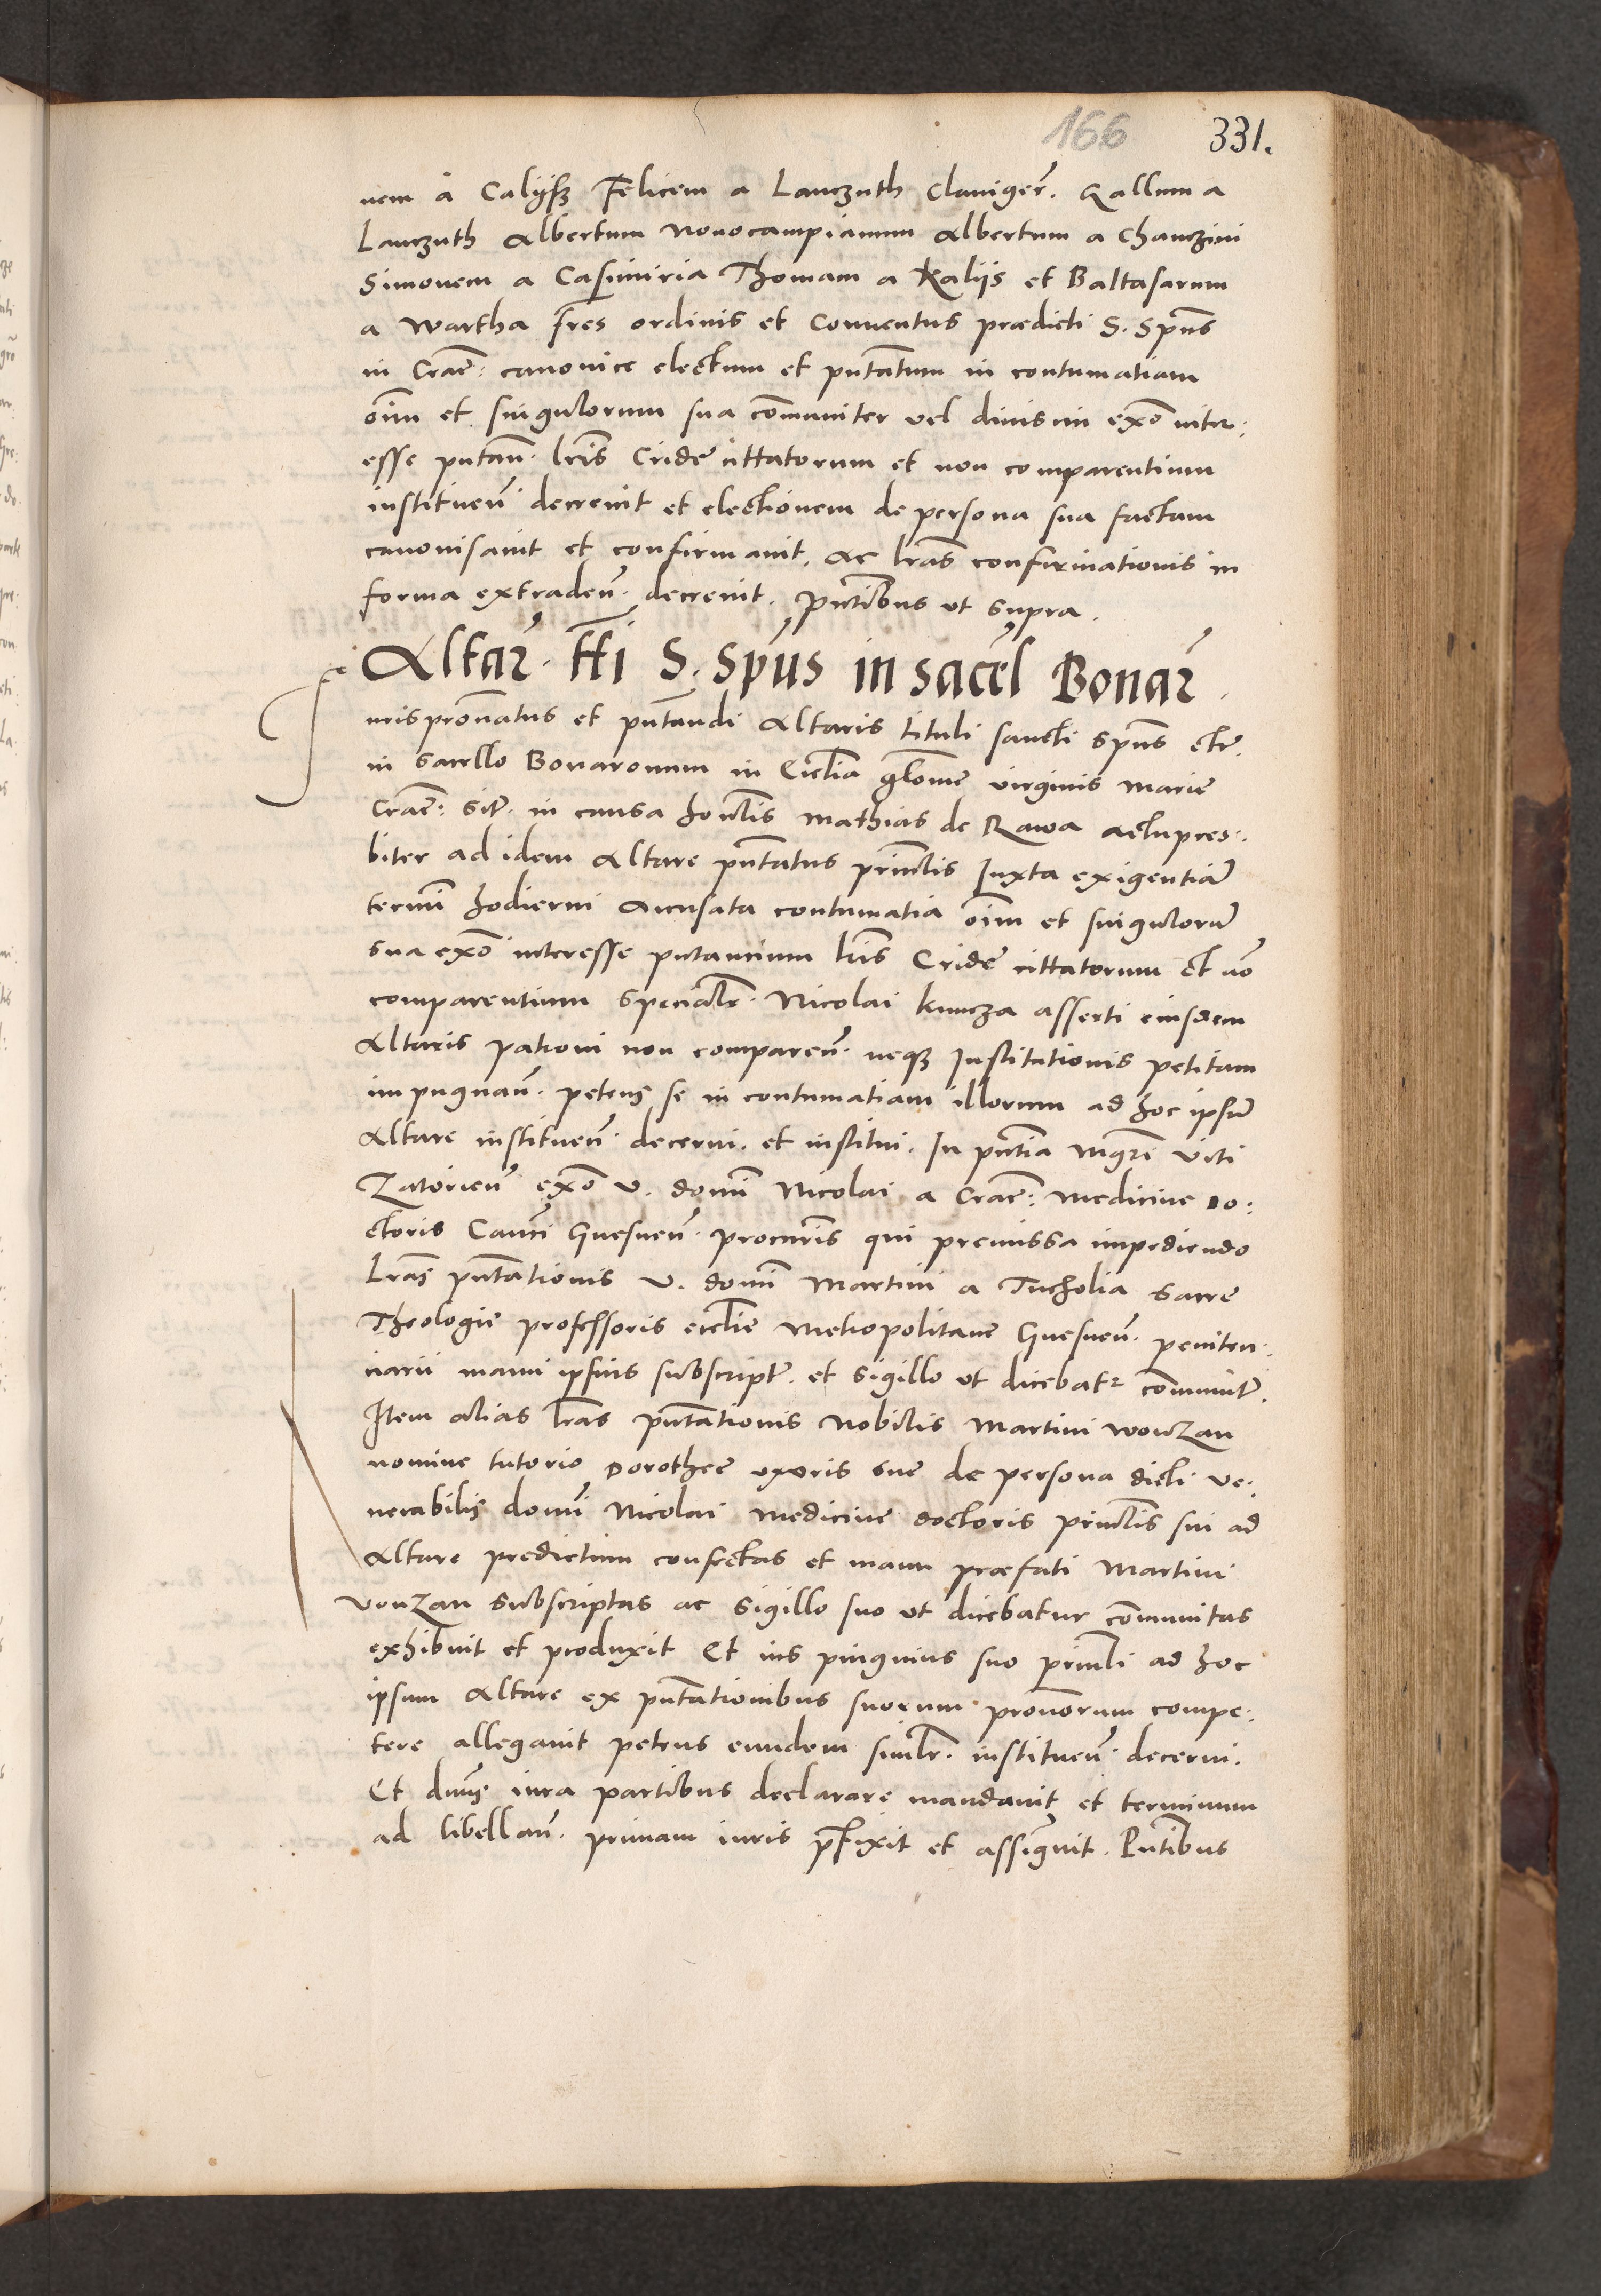 166 331.
nem a Calijsz Felicem a Lanczuth Clauiger̃. Gallum a
Lanczuth Albertum Nouocampianum Albertum a Chanczini
Simonem a Casimiria Thomam a Kalijs et Baltasarum
a Wartha fr̃es ordinis et Conuentus prædicti S. Sp̃us
in Crac̃: canonice electum et pñtatum in contumatiam
oĩm et singulorum sua com̃uniter vel diuisim ex͠o inter:
esse putañ. lr̃is Cridę cittatorum et non comparentium
instituen̄ decreuit et electionem de persona sua factam
canonisauit et confirmauit. Ac lr̃as confirmationis in
forma extraden̄. decreuit. pñtibus ut supra.
Altar̃. tt̃i S. Sp̃us in sacel̃ Bonar̃.
Iurispron̄atus et pñtandi Altaris tituli sancti Sp̃us etc̃.
in sacello Bonaronum in Ecclia gl̃ome virginis marie
Crac̃: sit̃. in causa hon̄lis Mathias de Rawa actu pres:
biter ad idem Altare pñtatus prin̄lis Iuxta exigentiã
termi͠ hodierni Accusata contumatia oĩm et singulorũ
sua ex͠o interesse putantium lr̃is Cridę cittatorum et nõ
comparentium specialr̃. Nicolai Kuncza asserti eiusdem
Altaris patroni non comparen̄. neqz Institutionis petitam
impugnan̄. petens se in contumatiam illorum ad hoc ipsũ
Altare instituen̄. decerni. et institui. In pñtia Mgr̃i Viti
Zatorien̄ ex͠o v. dom̃i Nicolai a Crac̃: Medicine do:
ctoris Can̄ci Gnesnen̄. procuris qui premissa impediendo
lr̃as pñtationis v. dom̃i Martini a Tucholia Sacre
Theologie professoris ecclie Metropolitane Gnesnen̄. peniten:
ciarii manu ipsius subscript̃. et sigillo ut dicebatr com̃unit̃.
Item alias lr̃as pñtationis Nobilis Martini Wonzan
nomine tutorio Dorothee uxoris sue de persona dicti ve:
nerabilis dom̃i Nicolai Medicine doctoris prin̄lis sui ad
Altare predictum confectas et manu præfati Martini
Vonzan subscriptas ac sigillo suo ut dicebatur com̃unitas
exhibuit et produxit Et ius pinguius suo prin̄li ad hoc
ipsum Altare ex pñtationibus suorum pron̄orum compe:
tere allegauit petens eundem simlr̃. instituen̄. decerni.
Et dn̄s iura partibus declarare mandauit et terminum
ad libellan̄. primam iuris p̃fixit et assignuit. Pñtibus